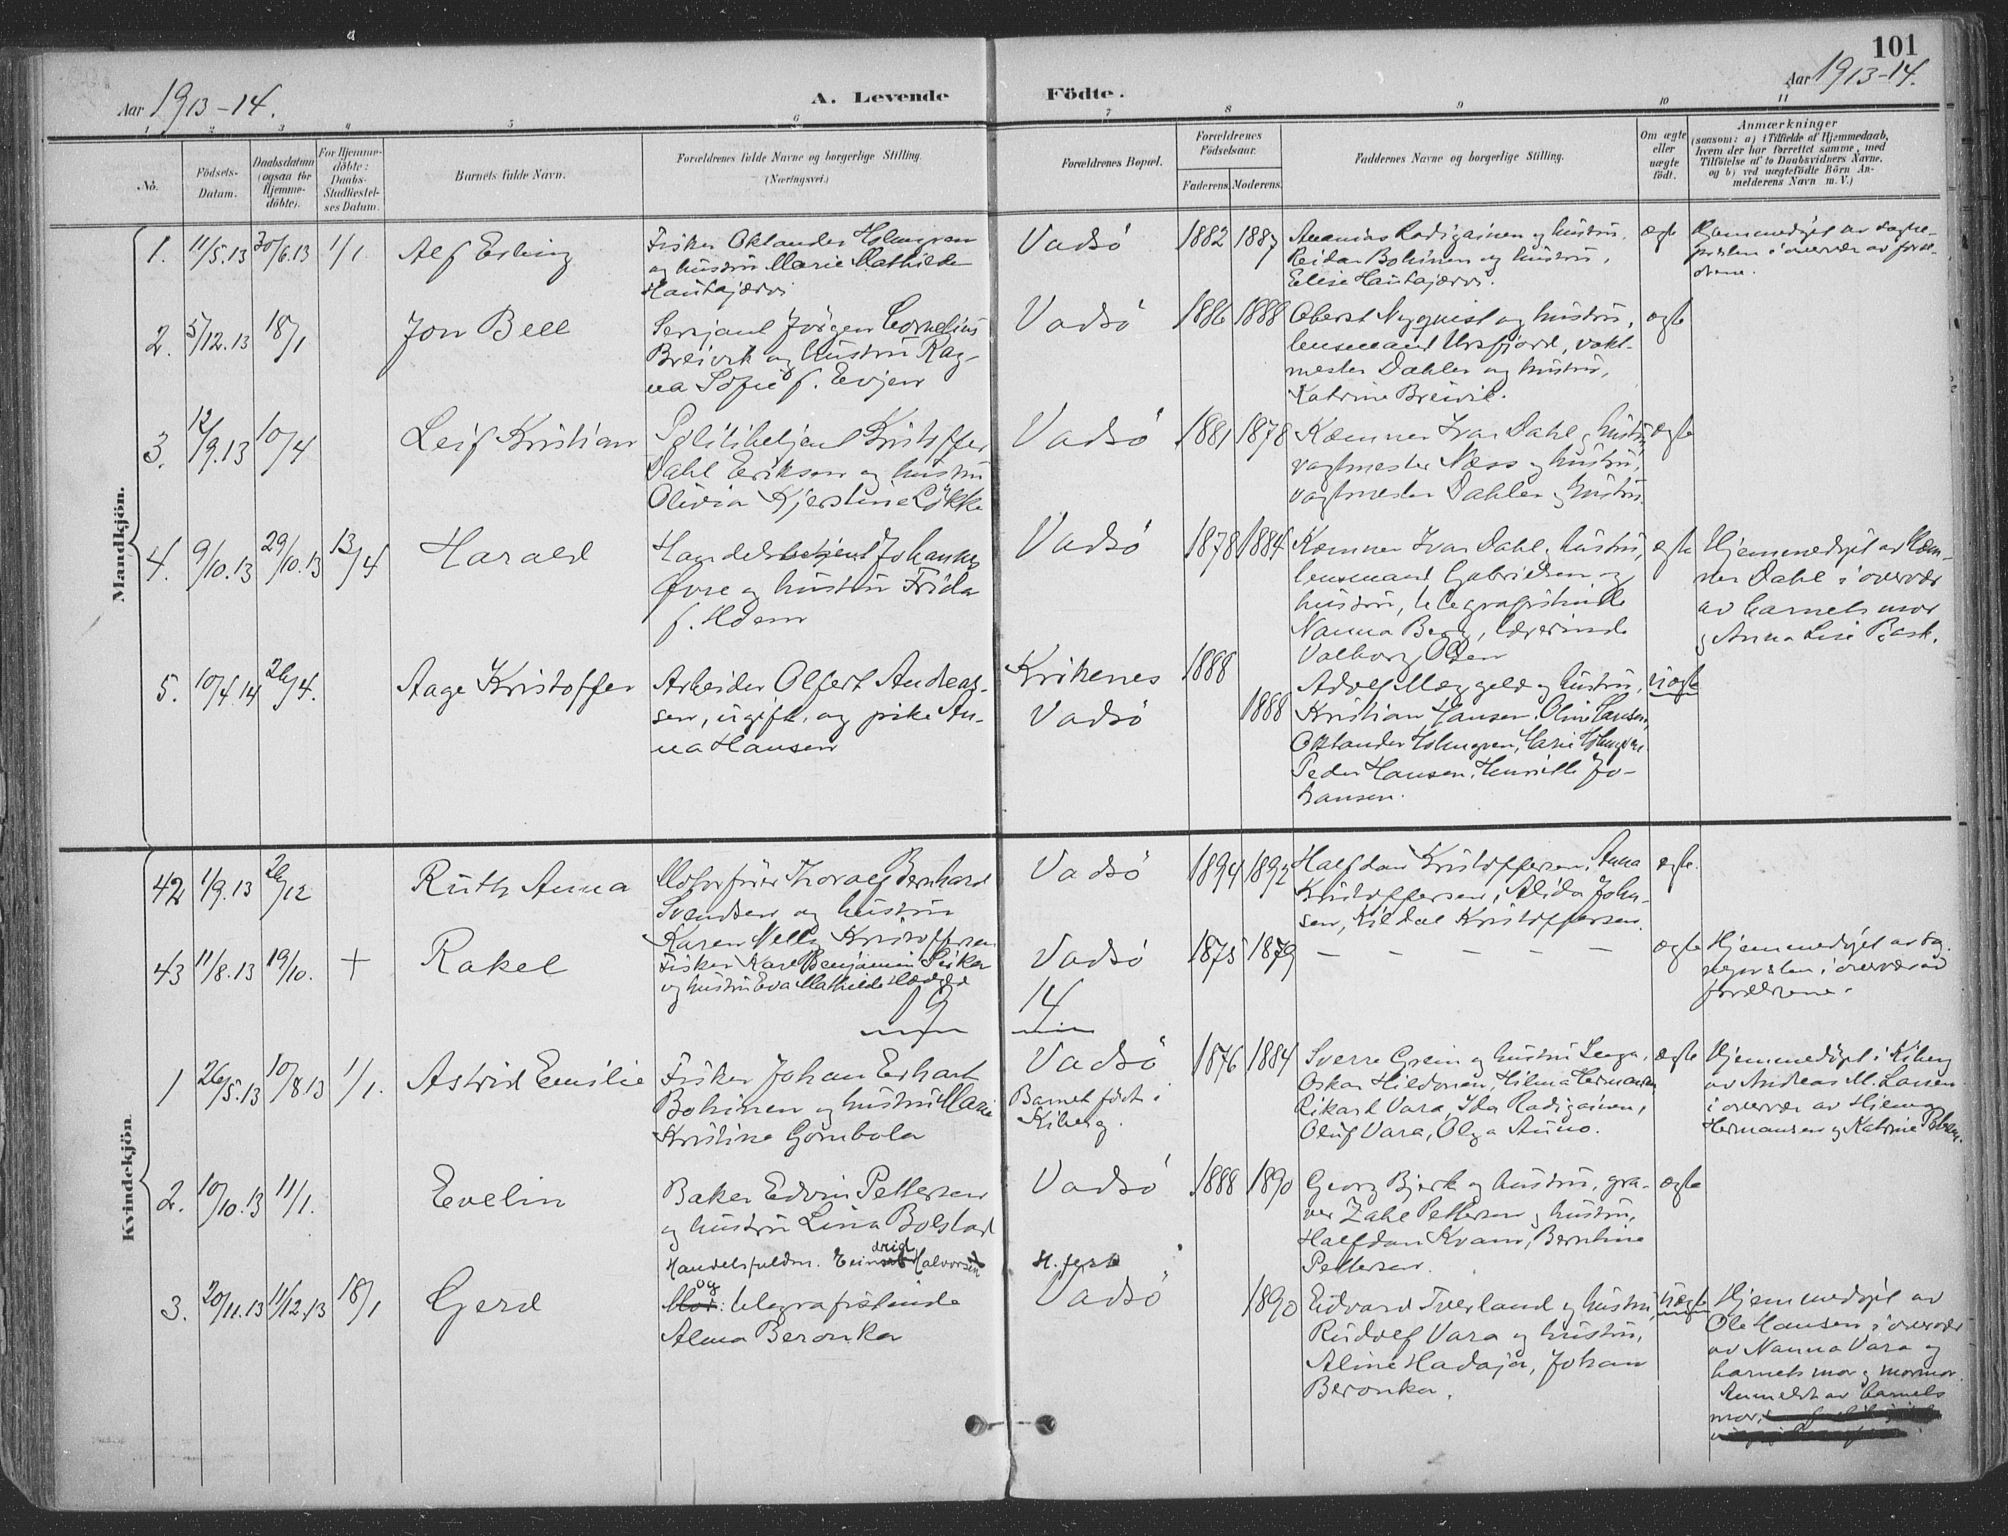 101
Aar 1913-14.
A. Levende Födte.
Aar 1913-14.
1 2 3 4 5 6 7 8 9 10 11
No.
Födsels-
Datum.
Daabsdatum
(ogsaa for
Hjemme-
döbte).
For Hjemme-
döbte:
Daabs-
Stadfæstel-
ses Datum.
Barnets fulde Navn.
Forældrenes fulde Navne og borgerlige Stilling.
(Næringsvei.)
Forældrenes Bopæl.
Forældrenes
Födselsaar.
Faderens. Moderens.
Faddernes Navne og borgerlige Stilling.
Om ægte
eller
uægte
födt.
Anmærkninger
(saasom: a) i Tilfælde af Hjemmedaab,
hvem der har forrettet samme, med
Tilföielse af to Daabsvidners Navne,
og b) ved uægtefödte Börn An-
melderens Navn m. V.)
Mandkjön.
1. 11/5.13 30/6.13 1/1 Alf Erling
Fisker Oklander Holmgren
og hustru Marie Mathilde
Hautajærvi
Vadsö 1882 1887
Ananias Radigainen og hustru,
Reidar Bohinen og hustru,
Elise Hautajærvi.
ægte
Hjemmedöpt av
i overvær av foræl-
drene.
2. 5/12.13 18/1 Jon Bell
Serjant Jörgen Cornelius
Breivik og hustru Rag-
na Sofie f. Evjen
Vadsö 1886 1888
Oberst Nyquist og hustru,
lensmand Ursfjord, vakt-
mester Dahler og hustru,
Katrine Breivik.
ægte
3. 12/9.13 10/4 Leif Kristian
Politibetjent Kristoffer
Dahl Eriksen og hustru
Olivia Kjerstine Løkke
Vadsö 1881 1878
Kæmner Ivar Dahl og hustru,
vagtmester Næss og hustru,
vagtmester Dahler og hustru.
ægte
4. 9/10.13 29/10.13 13/4 Harald
Handelsbetjent Johannes
Øvre og hustru Frida
f. Moen
Vadsö 1878 1884
Kæmner Ivar Dahl og hustru,
lensmand Gabrielsen og
hustru, telegrafistinde
Nanna Berg, lærerinde
Valborg Olsen
ægte
Hjemmedöpt av Kæm-
ner Dahl i overvær
av barnets mor
og Anna Lise Bask.
5. 10/4.14 26/4. Aage Kristoffer
Arbeider Olfert Andreas-
sen, ugift, og pike An-
na Hansen
Kirkenes 1888
Vadsö 1888
Adolf Mæggele og hustru,
Kristian Hansen, Oline Hansen,
Oklander Holmgren, Marie Holmgren,
Peder Hansen, Henriette Jo-
hansen.
uægte
Kvindekjön
42 1/9.13 26/12 Ruth Anna
Motorfører Thoralf Bernhard
Svendsen og hustru
Karen Nelly Kristoffersen
Vadsö 1894 1892
Halfdan Kristoffersen, Anna
Kristoffersen, Alida John-
sen, Kildal Kristoffersen.
ægte.
43 11/8.13 19/10. + Rakel
Fisker Karl Benjamin Siker
og hustru Eva Mathilde
Vadsö 1875 1879
– – – – –
ægte
Hjemmedöpt av sog-
nepresten i overvær av
forældrene.
19 14
1 26/5.13 10/8.13 1/1. Astrid Emilie
Fisker Johan Erhart
Bohinen og hustru Marie
Kristine Gombola
Vadsö
Barnet født i
Kiberg.
1876 1884
Sverre Grein og hustru Senja,
Oskar Hildonen, Hilma Hermansen,
Rikart Vara, Ida Radigainen,
Oluf Vara, Olga Auno.
ægte
Hjemmedöpt i Kiberg
av Andreas M. Larsen
i overvær av Hilma
Hermansen og Katrine
2. 10/10.13 11/1. Evelin
Baker Edvin Pettersen
og hustru Lina Bolstad
Vadsö 1888 1890
Georg Bjerk og hustru, gra-
ver Zahl Pettersen og hustru,
Halfdan Kvam, Berntine
Pettersen.
ægte
3. 20/11.13 11/12.13 18/1 Gerd
Handelsfuldm. Eindrid Halvorsen
og
Mor: telegrafistinde
Alma Beronka
H.fest
Vadsö
1890
Edvard Tverland og hustru,
Rudolf Vara og hustru,
Aline Hadaja, Johan
Beronka.
uægte
Hjemmedöpt av
Ole Hansen i overvær
av Nanna Vara og
barnets mor og mormor.
Anmeldt av barnets
mor.